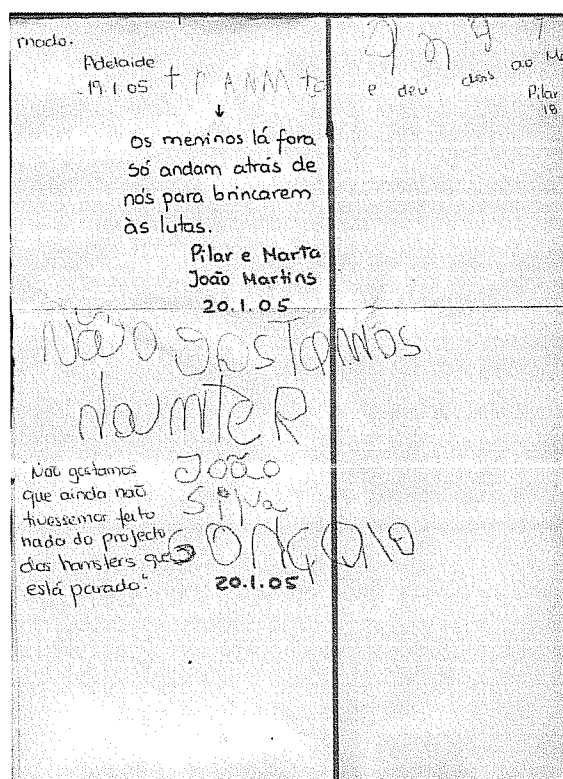 mado.
Adelaide
19.1.05
Os meninos lá fora
só andam atrás de
nós para brincarem
às lutas.
Pilar e Marta
João Martins
20.1.05
Não gostamos
João
Silva
Não gostamos
que ainda não
tivessemos feito
nada do projecto
dos hamsters que
está parado."
20.1.05
e deu dois ao
Pilar
18